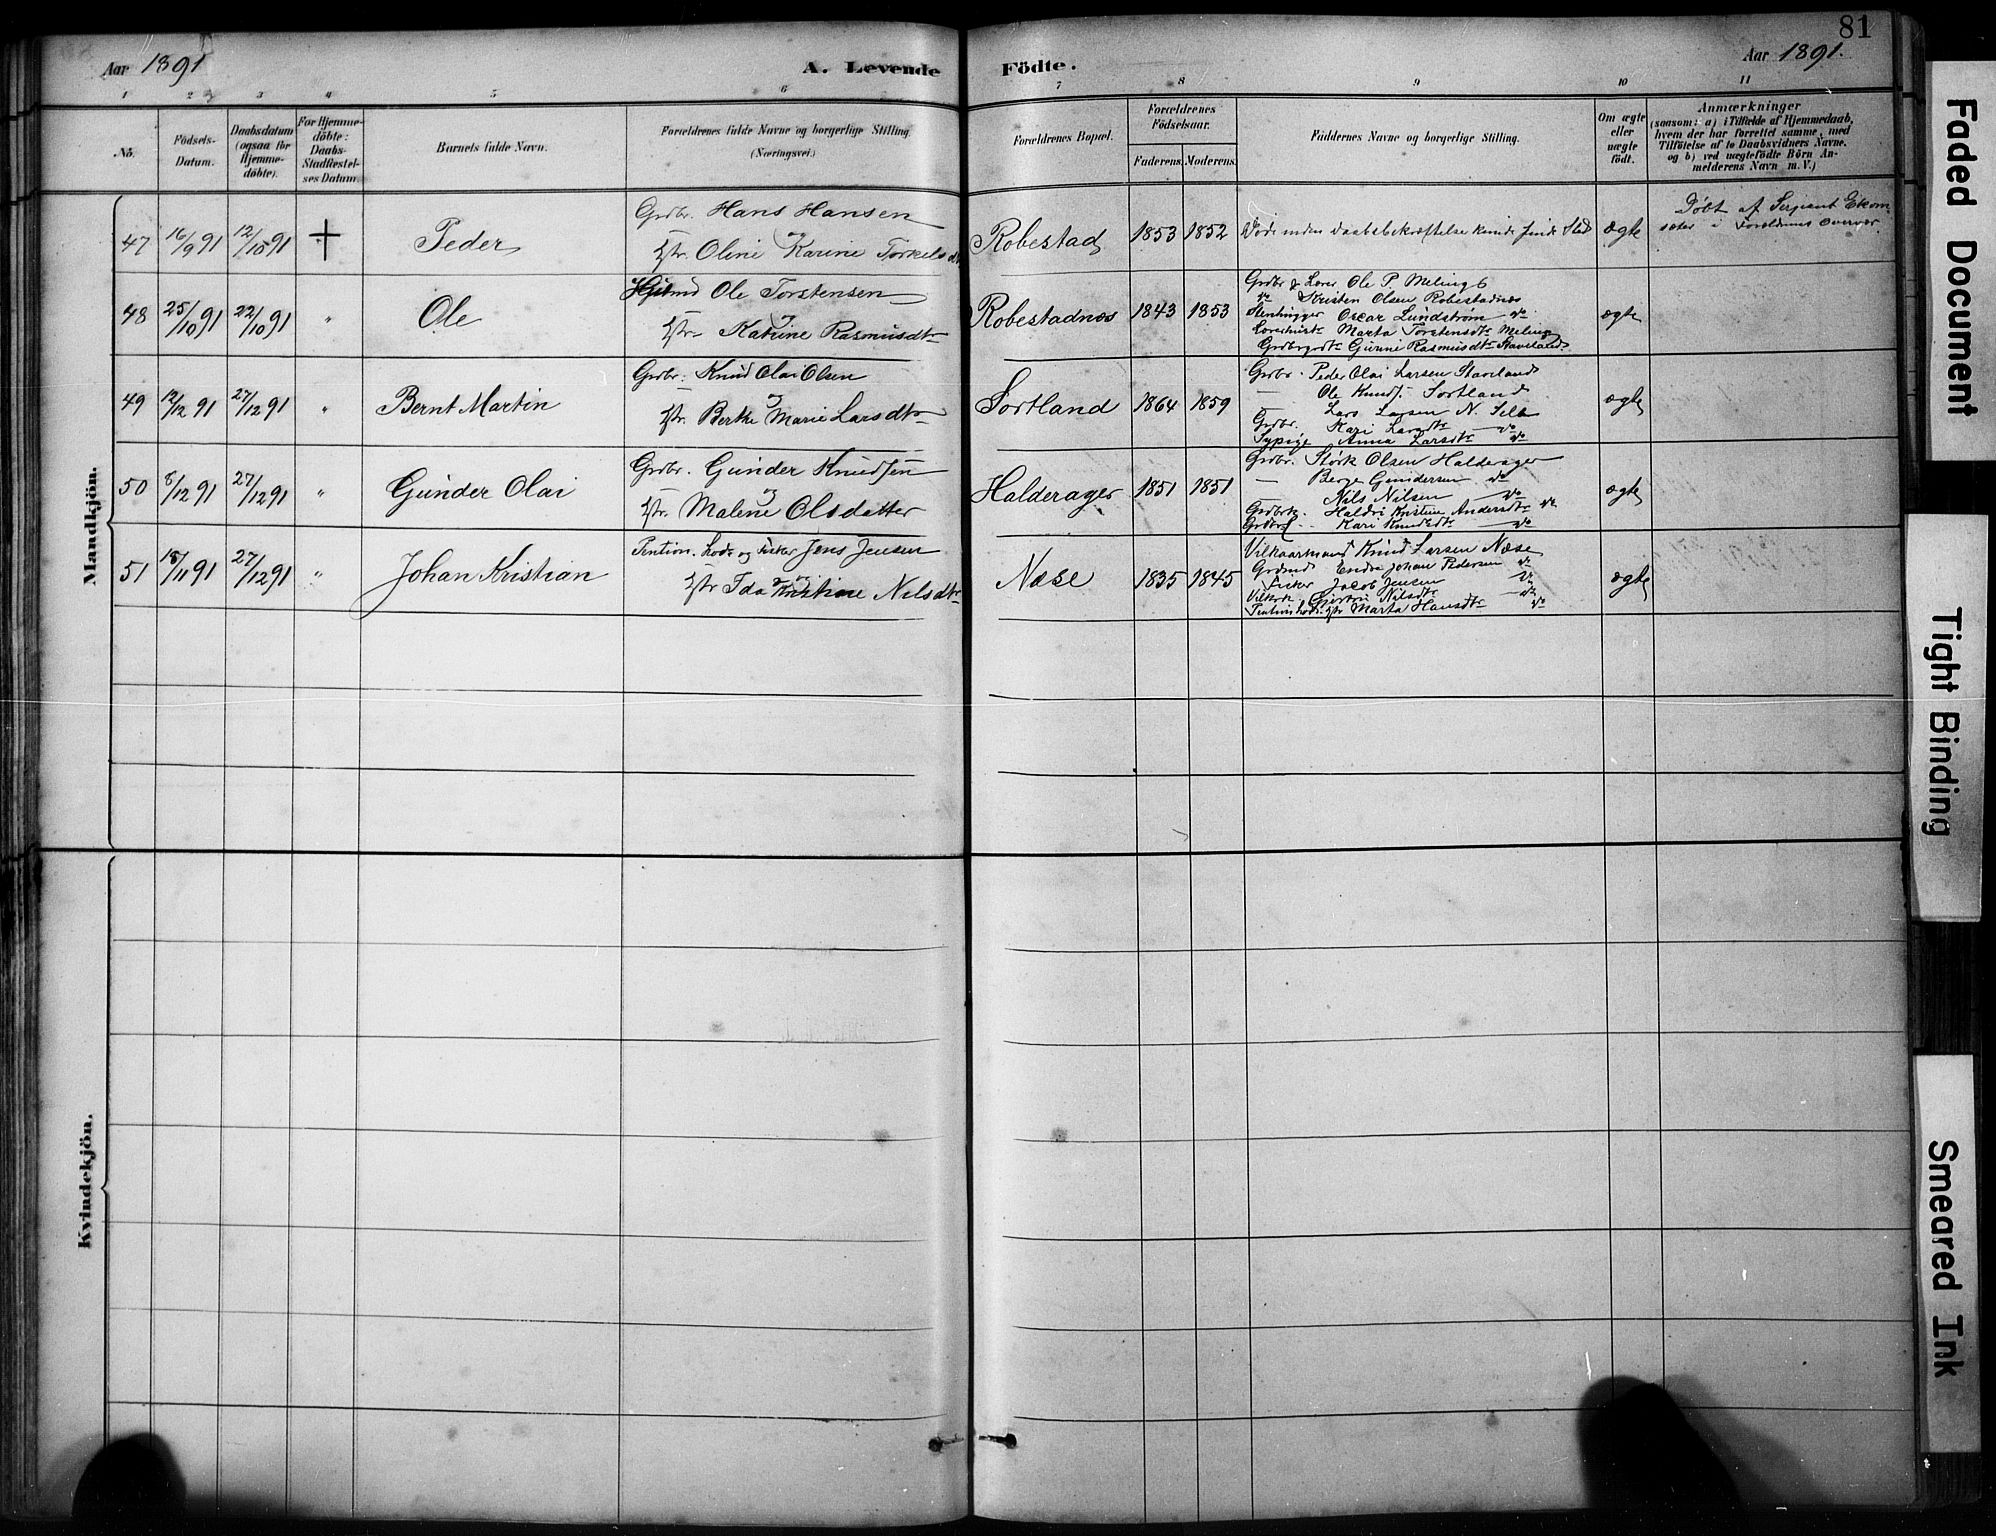 81
Aar 1891
A. Levende Födte.
Aar 1891.
1 2 3 4 5 6 7 8 9 10 11
No.
Födsels-Datum.
Daabsdatum (ogsaa for Hjemme-döbte).
For Hjemme-döbte: Daabs-Stadfæstel-ses Datum.
Barnets fulde Navn.
Forældrenes fulde Navne og borgerlige Stilling.
(Næringsvei.)
Forældrenes Bopæl.
Forældrenes Födselsaar.
Faderens. Moderens.
Faddernes Navne og borgerlige Stilling.
Om ægte eller uægte födt.
Anmærkninger
(saasom: a) i Tilfælde af Hjemmedaab,
hvem der har forrettet samme, med
Tilföielse af to Daabsvidners Navne.
og b) ved uægtefödte Börn An-
melderens Navn m. V.)
Mandkjön.
47 16/9 91 12/10 91 + Peder
Grdbr. Hans Hansen
og
Hstr. Oline Karine Torkelsdt
Robestad 1853 1852
Døde inden daabsbekræftelse kunde finde Sted
ægte
Døbt af Serjeant Ekom-
sæter i Forældrenes overvær.
48 25/10 91 22/10 91 " Ole
Ole Torstensen
og
Hstr. Katrine Rasmusdtr
Robestadnæs 1843 1853
Grdbr & Lærer Ole P. Meling
do Kristen Olsen Robestadnæs
Stenhugger Oscar Lundstrøm do
Marta Torstensdtr Meling
Gunni Rasmusdtr Staveland.
ægte
49 12/12 91 27/12 91 " Bernt Martin
Grdbr. Knud Olai Olsen
og
Hstr. Berthe Marie Larsdtr
Sortland 1864 1859
Grdbr. Peder Olai Larsen Staveland
— Ole Knuds. Sortland
— Lars Larsen N. Selb
Grdbr. Kari Larsdtr — do
Sypige Anna Larsdtr do
ægte
50 8/12 91 27/12 91 " Gunder Olai
Grdbr. Gunder Knudsen
og
Hstr. Malene Olsdatter
Halderager 1851 1851
Grdbr. Størk Olsen Halderager
— Berge Gundersen do
— Nils Nilsen — do
Haldri Kristine Andersdtr do
Kari Knudsdtr — do
ægte
51 18/11 91 27/12 91 " Johan Kristian
Pention. Lods og Fisker Jens Jensen
og
Hstr Ida Kristine Nilsdtr
Næse 1835 1845
Vilkaarmand Knud Larsen Næse
Grdmd Endre Johan Pedersen do
Fisker Jacob Jensen do
Nilsdtr — do
Marta Hansdtr do
ægte
Kvindekjön.
Faded Document
Tight Binding
Smeared Ink